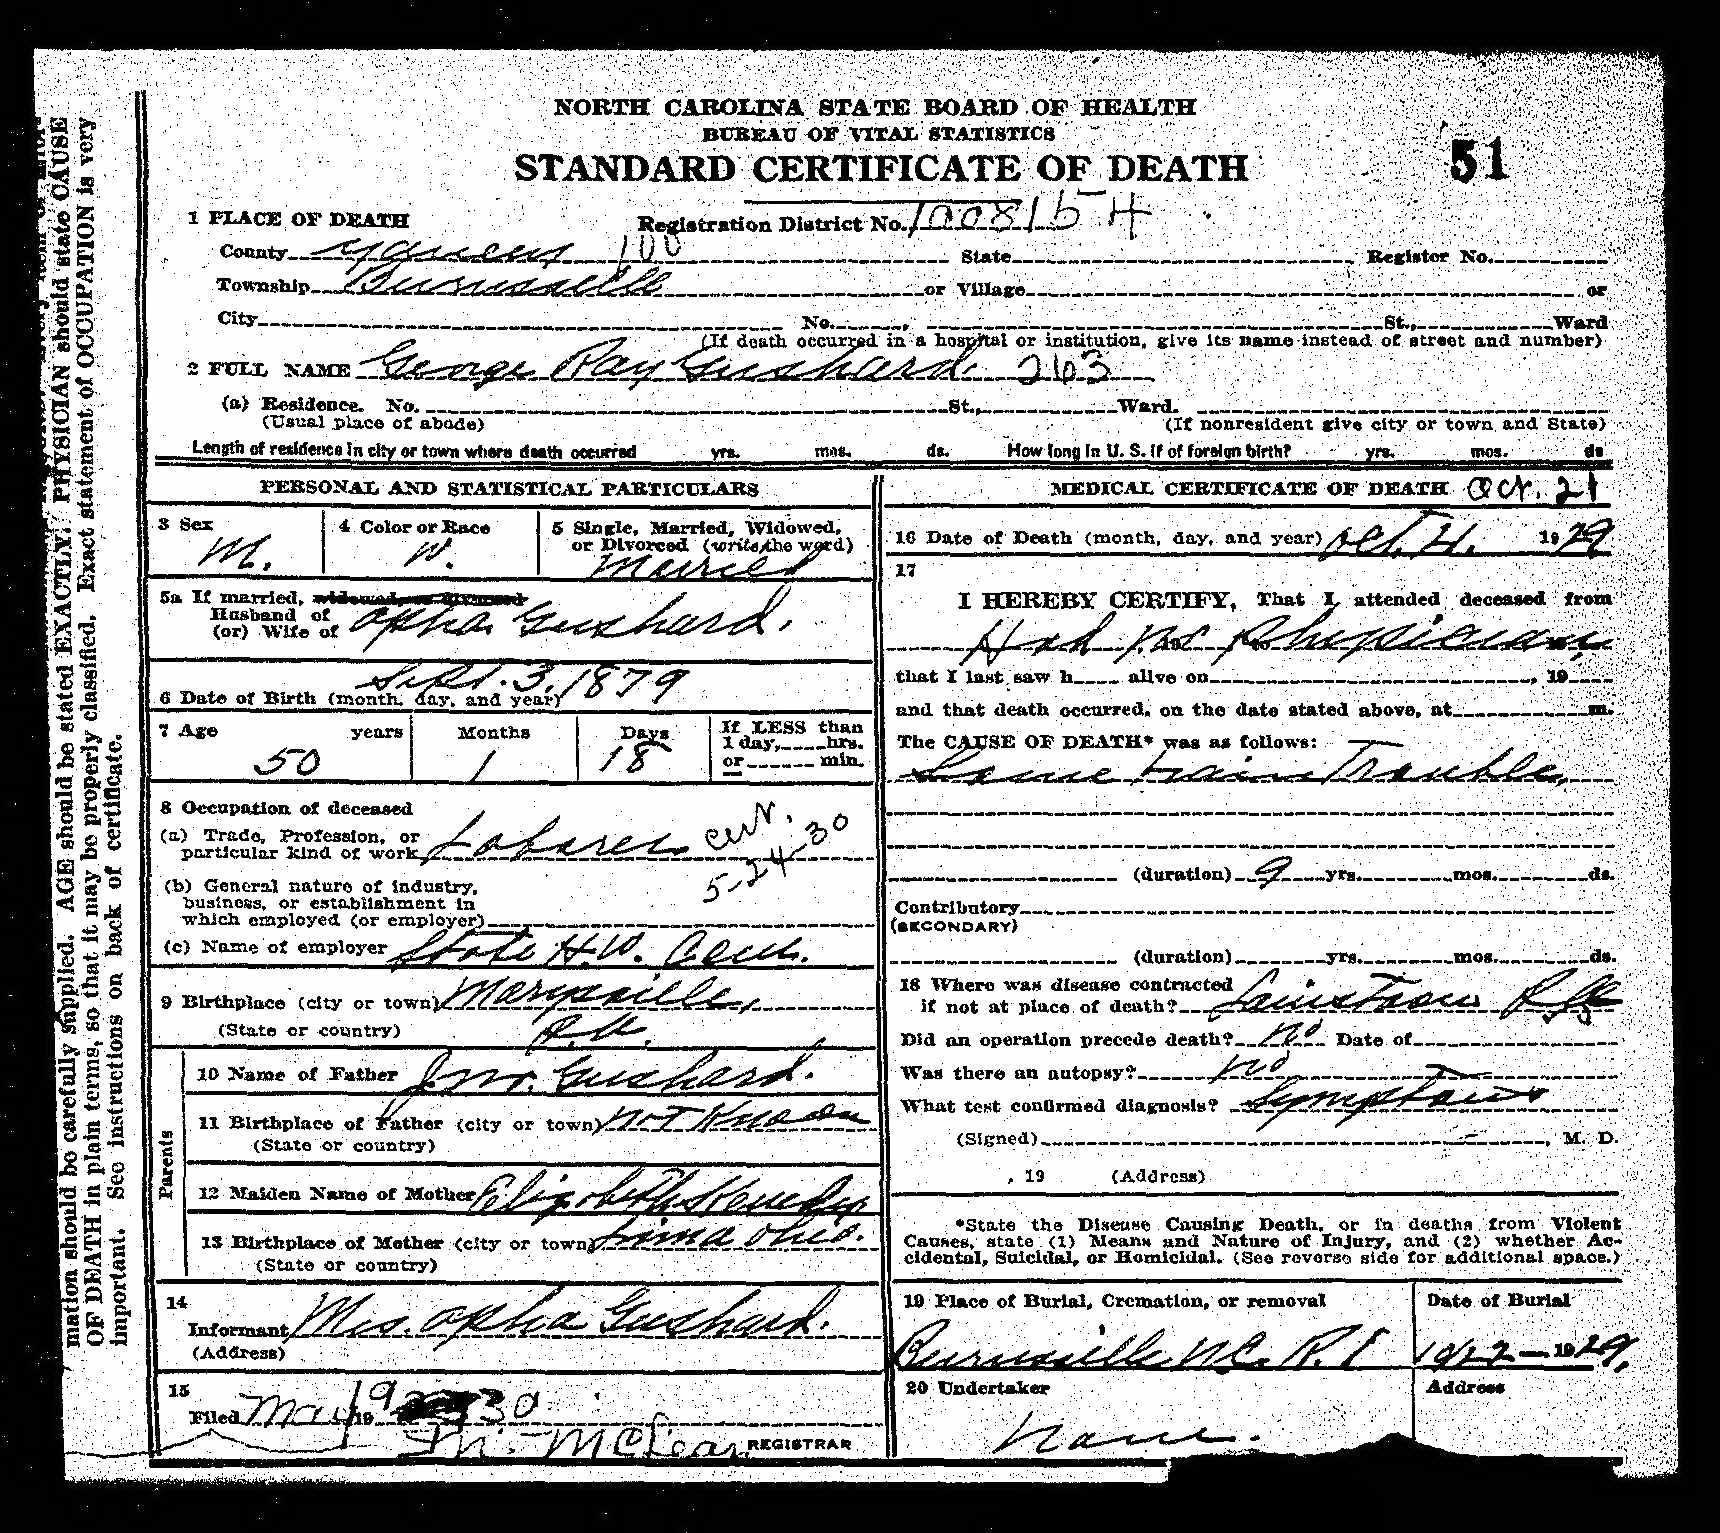 NORTH CAROLINA STATE BOARD OF HEALTH
BUREAU OF VITAL STATISTICS
STANDARD CERTIFICATE OF DEATH
51
1 PLACE OF DEATH
Registration District No. 1008154
County Yancey 100 State Register No.
Township Burnsville or Village or
City No. , St., Ward
(If death occurred in a hospital or institution, give its name instead of street and number)
2 FULL NAME George Ray Gushard. 263
(a) Residence. No. St., Ward.
(Usual place of abode) (If nonresident give city or town and State)
Length of residence in city or town where death occurred yrs. mos. ds. How long in U. S. if of foreign birth? yrs. mos. ds
PERSONAL AND STATISTICAL PARTICULARS
3 Sex 4 Color or Race 5 Single, Married, Widowed,
or Divorced (write the word)
M. W. Married
5a If married, widowed, or divorced
Husband of
(or) Wife of Opha Gushard.
Sept. 3, 1879
6 Date of Birth (month, day, and year)
7 Age years Months Days If LESS than
1 day, hrs.
or min.
50 1 18
8 Occupation of deceased
(a) Trade, Profession, or
particular kind of work Laborer
cert.
5-24-30
(b) General nature of industry,
business, or establishment in
which employed (or employer)
(c) Name of employer State H.W. Com.
9 Birthplace (city or town) Marysville,
(State or country)
Parents
10 Name of Father Jno. Gushard.
11 Birthplace of Father (city or town) not Known
(State or country)
12 Maiden Name of Mother Elizabeth Kenedy
13 Birthplace of Mother (city or town) Lima Ohio.
(State or country)
14
Informant Mrs. Opha Gushard.
(Address)
15
Filed May 19 19 30
McLean REGISTRAR
MEDICAL CERTIFICATE OF DEATH Oct. 21
16 Date of Death (month, day, and year) Oct. 21. 1929
17
I HEREBY CERTIFY, That I attended deceased from
Had no Physician,
that I last saw h alive on , 19
and that death occurred, on the date stated above, at m.
The CAUSE OF DEATH* was as follows:
Some Trouble,
(duration) 9 yrs. mos. ds.
Contributory
(SECONDARY)
(duration) yrs. mos. ds.
18 Where was disease contracted
if not at place of death?
Did an operation precede death? no Date of
Was there an autopsy? no
What test confirmed diagnosis? Symptoms
(Signed) , M. D.
, 19 (Address)
*State the Disease Causing Death, or in deaths from Violent
Causes, state (1) Means and Nature of Injury, and (2) whether Ac-
cidental, Suicidal, or Homicidal. (See reverse side for additional space.)
19 Place of Burial, Cremation, or removal Date of Burial
Burnsville NC. R.1 10/22 — 1929.
20 Undertaker Address
None.
mation should be carefully supplied. AGE should be stated EXACTLY. PHYSICIAN should state CAUSE
OF DEATH in plain terms, so that it may be properly classified. Exact statement of OCCUPATION is very
important. See instructions on back of certificate.